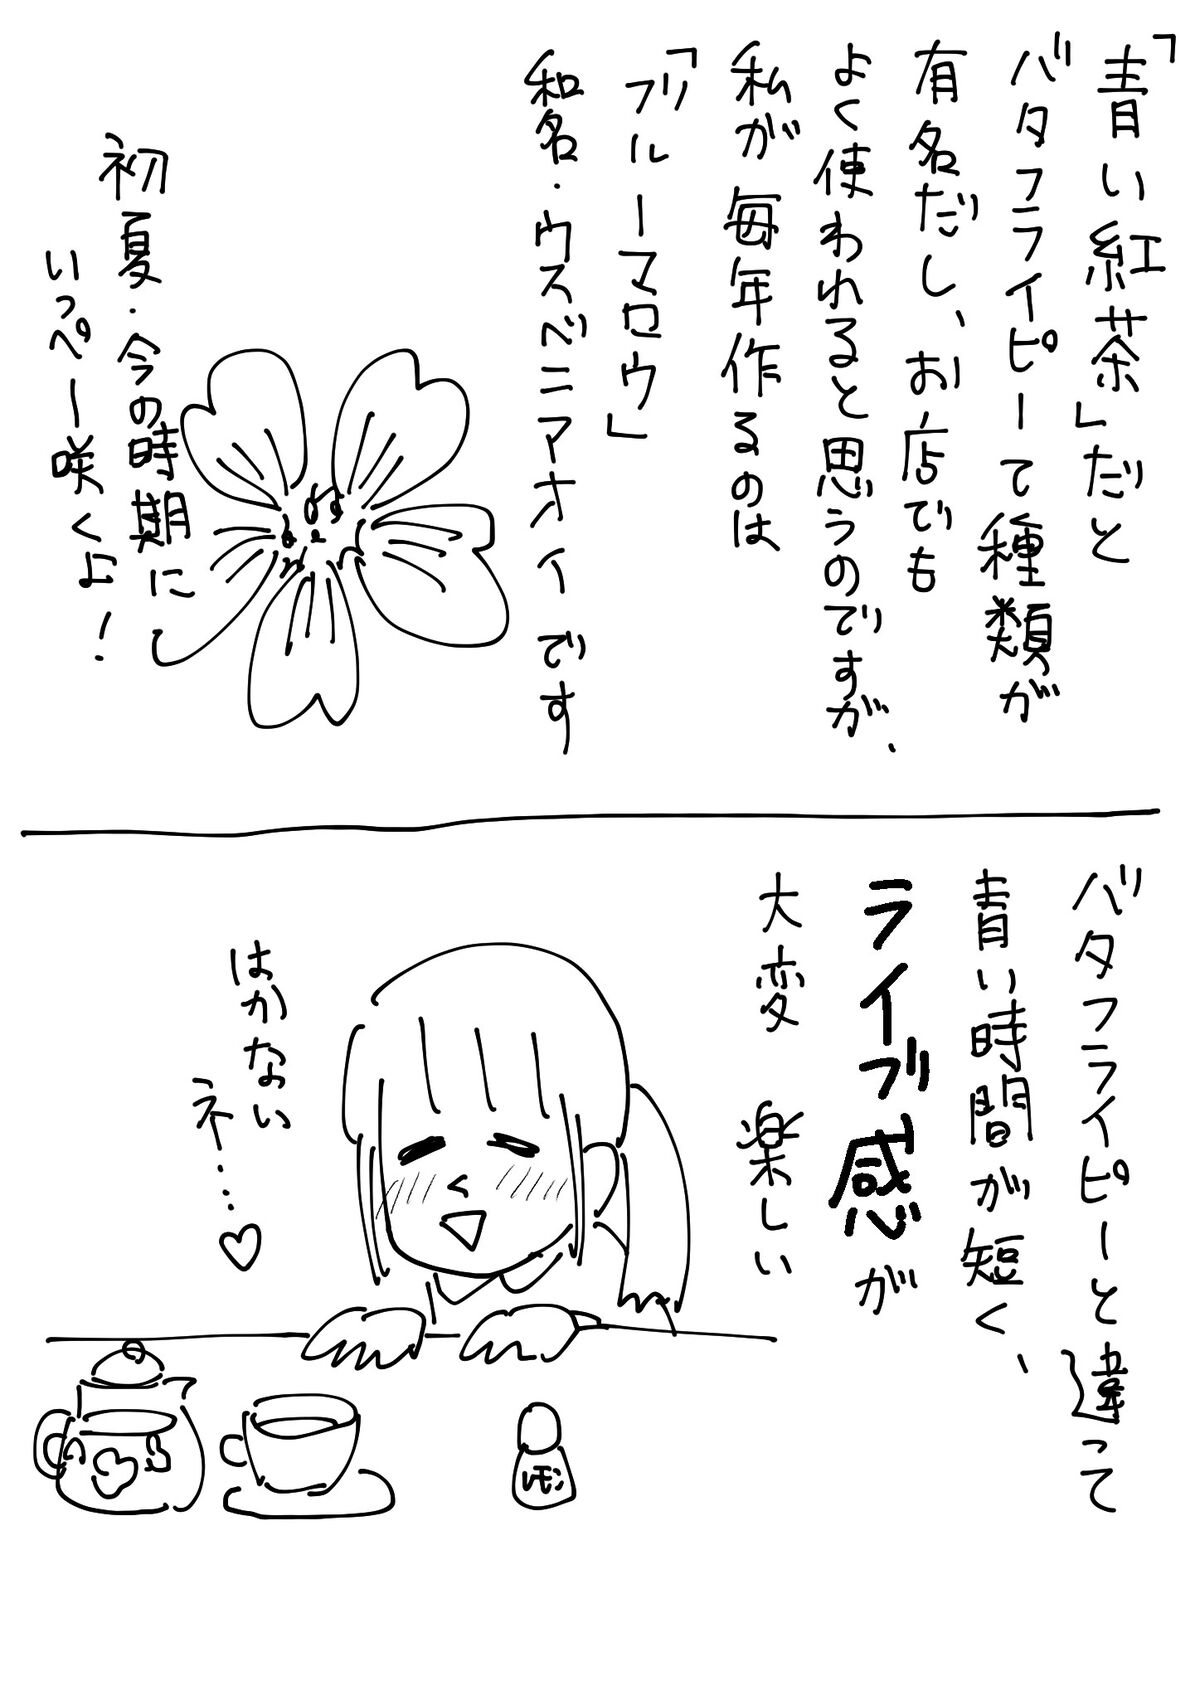 「青い紅茶」だと
バタフライピーて種類が
有名だし、お店でも
よく使われると思うのですが、
私が毎年作るのは
「ブルーマロウ」
和名・ウスベニアオイです
初夏・今の時期に
いっぺー咲くよ!
バタフライピーと違って
青い時間が短く、
ライブ感が
大変 楽しい
はかない
ネ…♡
レモン